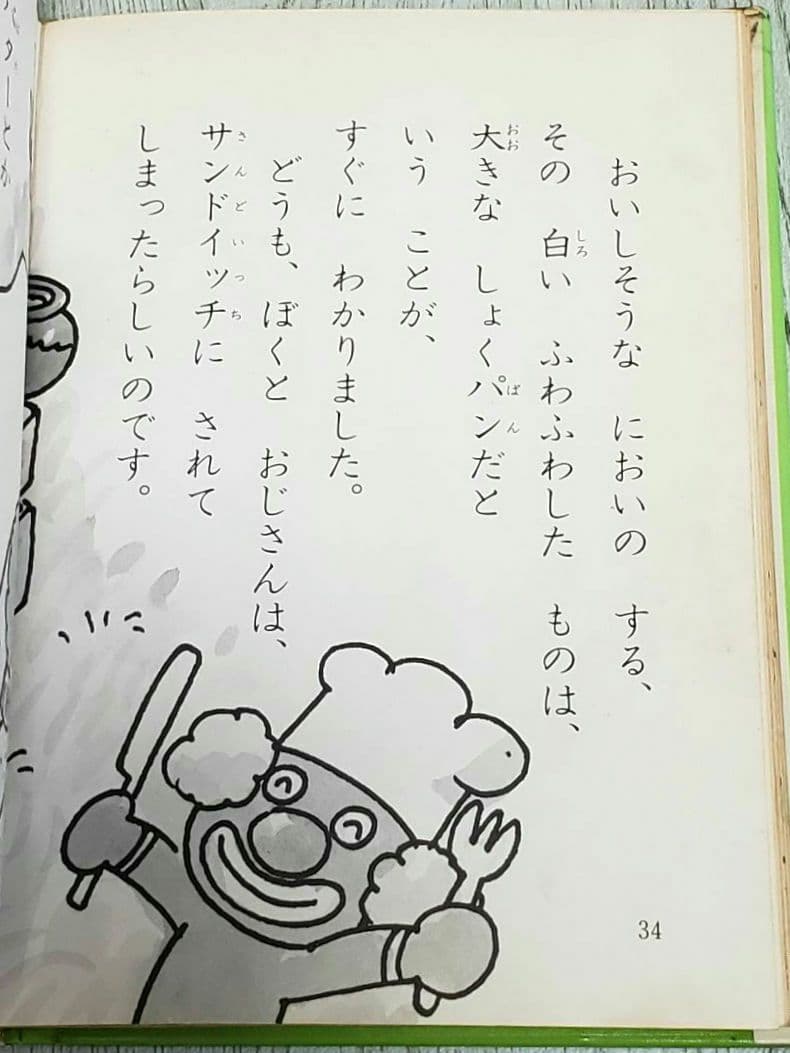 おいしそうな においの する、
その 白い ふわふわした ものは、
大きな しょくパンだと
いう ことが、
すぐに わかりました。
どうも、ぼくと おじさんは、
サンドイッチに されて
しまったらしいのです。
34